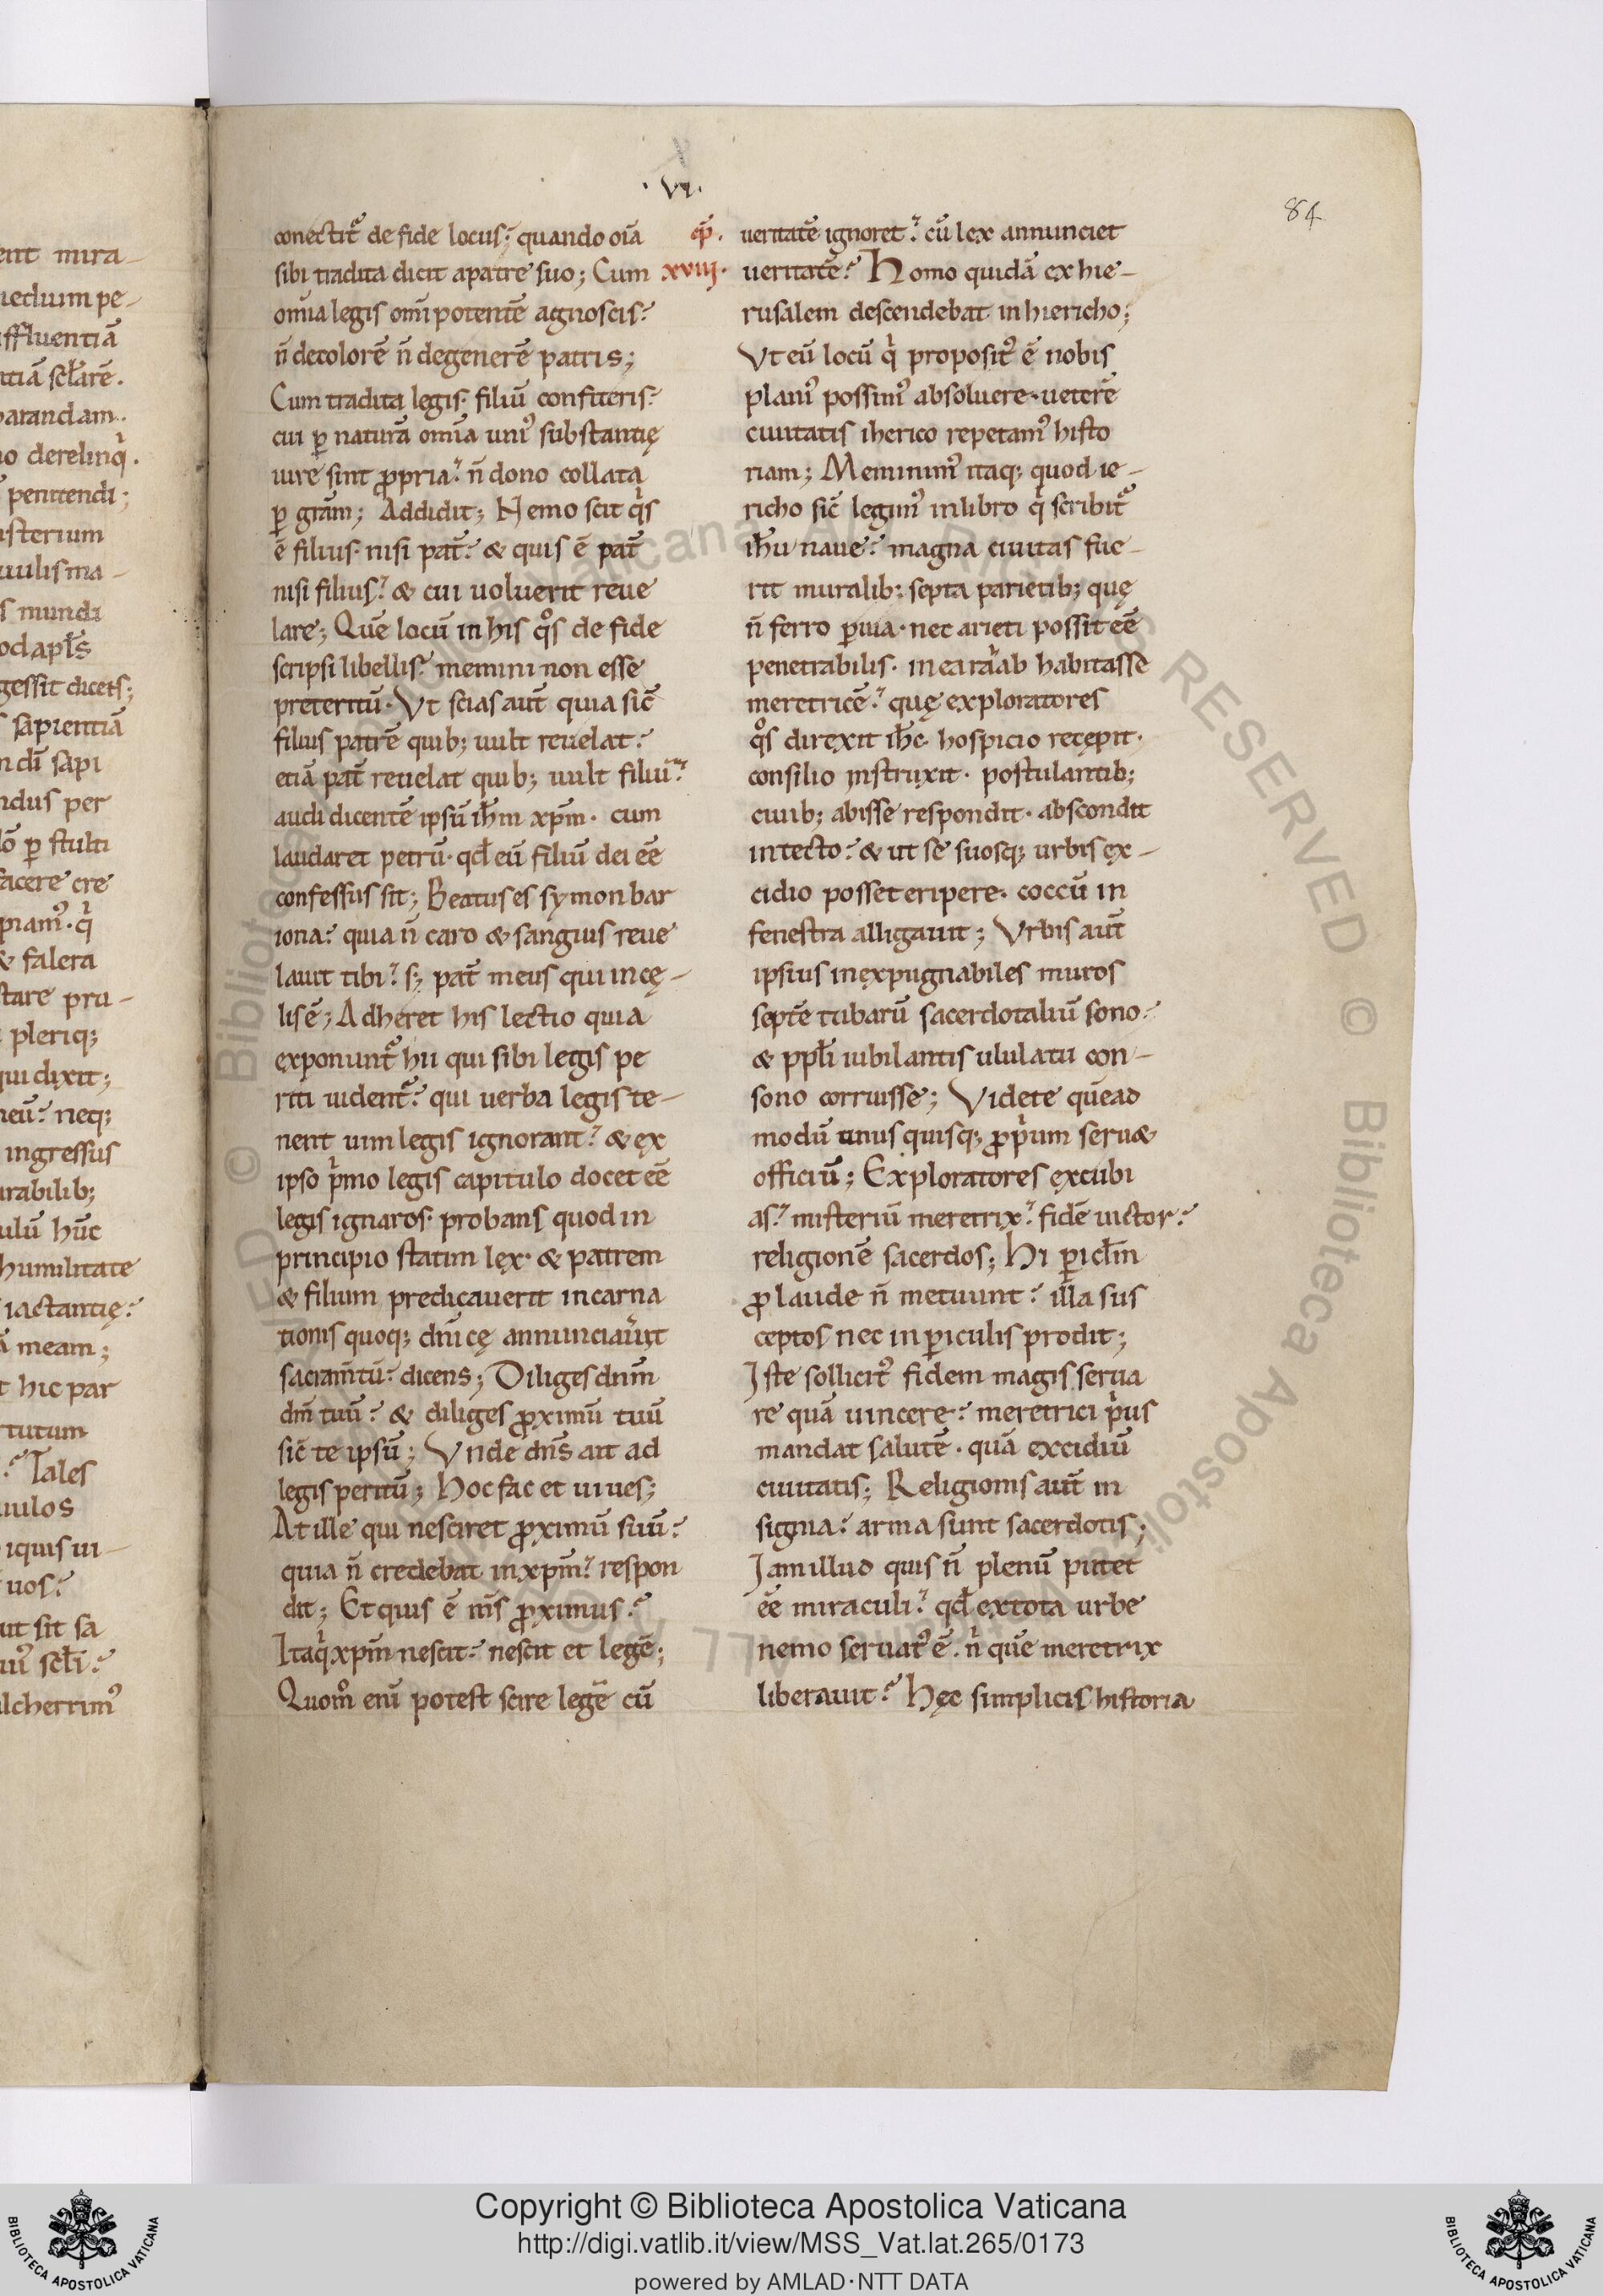 ·VI·
84
conectit᷑ de fide locus; quando oīa
sibi tradita dicit apatre suo; Cum
omīa legis omīpotentē agnoscis?
n̄ decolorē n̄ degenerē patris;
Cum tradita legis· filiū confiteris?
cui ꝑ naturā omīa uniꝰ substantię
iure sint ꝓpria? n̄ dono collata
ꝑ grām; Addidit; Nemo scit qͥs
ē filius· nisi pat̄? & quis ē pat̄
nisi filius? & cui uoluerit reue
lare; Quē locū in his qͦs de fide
scripsi libellis? memini non esse
preteritū· Vt scias aut̄ quia sic̄
filius patrē quib; uult reuelat?
etiā pat̄ reuelat quib; uult filiū?
audi dicentē ipsū ih̄m xp̄m· cum
laudaret petrū· qđ eū filiū dei eē
confessus sit; Beatus es symon bar
iona? quia n̄ caro & sanguis reue
lauit tibi? s; pat̄ meus qui in cę-
lis ē; Adheret his lectio quia
exponunt᷑ hii qui sibi legis pe
riti uident᷑? qui uerba legis te-
nent uim legis ignorant? & ex
ipso pͥmo legis capitulo docet eē
legis ignaros· probans quod in
principio statim lex· & patrem
& filium predicauerit incarna
tionis quoq; dn̄icę annunciauͥit
sacram̄tū? dicens; Diliges dnm̄
dm̄ tuū? & diliges ꝓximū tuū
sic̄ te ipsū; Vnde dn̄s ait ad
legis peritū; Hoc fac et uiues;
At ille qui nesciret ꝓximū suū?
quia n̄ credebat in xp̄m? respon
dit; Et quis ē m̄s ꝓximus?
Itaqͥ xp̄m nescit? nescit et legē;
Quom̊ enī potest scire legē cū
cp̄.
xviij·
ueritatē ignoret? cū lex annunciet
ueritatē? Homo quidā ex hie-
rusalem descendebat in hiericho;
Vt eū locū qͥ propositꝰ ē nobis
planiꝰ possimꝰ absoluere· ueterē
ciuitatis iherico repetamꝰ histo
riam; Meminimꝰ itaq; quod ie-
richo sic̄ legimꝰ in libro qͥ scribit᷑
ih̄u naue? magna ciuitas fue-
rit muralib; septa parietib; quę
n̄ ferro ꝑuia· nec arieti possit eē
penetrabilis· in ea raab habitasse
meretricē? quę exploratores
qͦs direxit ih̄c hospicio recepit·
consilio instruxit· postulantib;
ciuib; abisse respondit· abscondit
in tecto? & ut se suosq; urbis ex-
cidio posset eripere· coccū in
fenestra alligauit; Vrbis aut̄
ipsius inexpugnabiles muros
septē tubarū sacerdotaliū sono?
& ppłi iubilantis ululatu con-
sono corruisse; Videte quēad
modū unus quisq; ꝓpͥum seru&
officiū; Exploratores excubi
as? misteriū meretrix? fidē uictor?
religionē sacerdos; Hi ꝑicłm
ꝓ laude n̄ metuunt? illa sus
ceptos nec in ꝑiculis prodit;
Iste sollicitꝰ fidem magis serua
re quā uincere? meretrici pͥus
mandat salutē· quā excidiū
ciuitatis; Religionis aut̄ in
signia? arma sunt sacerdotis;
Iam illud quis n̄ plenū putet
eē miraculi? qđ ex tota urbe
nemo seruatꝰ ē· nͥ quē meretrix
liberauit? Hęc simplicis historia
Copyright © Biblioteca Apostolica Vaticana
http://digi.vatlib.it/view/MSS_Vat.lat.265/0173
powered by AMLAD·NTT DATA
BIBLIOTECA APOSTOLICA VATICANA
BIBLIOTECA APOSTOLICA VATICANA